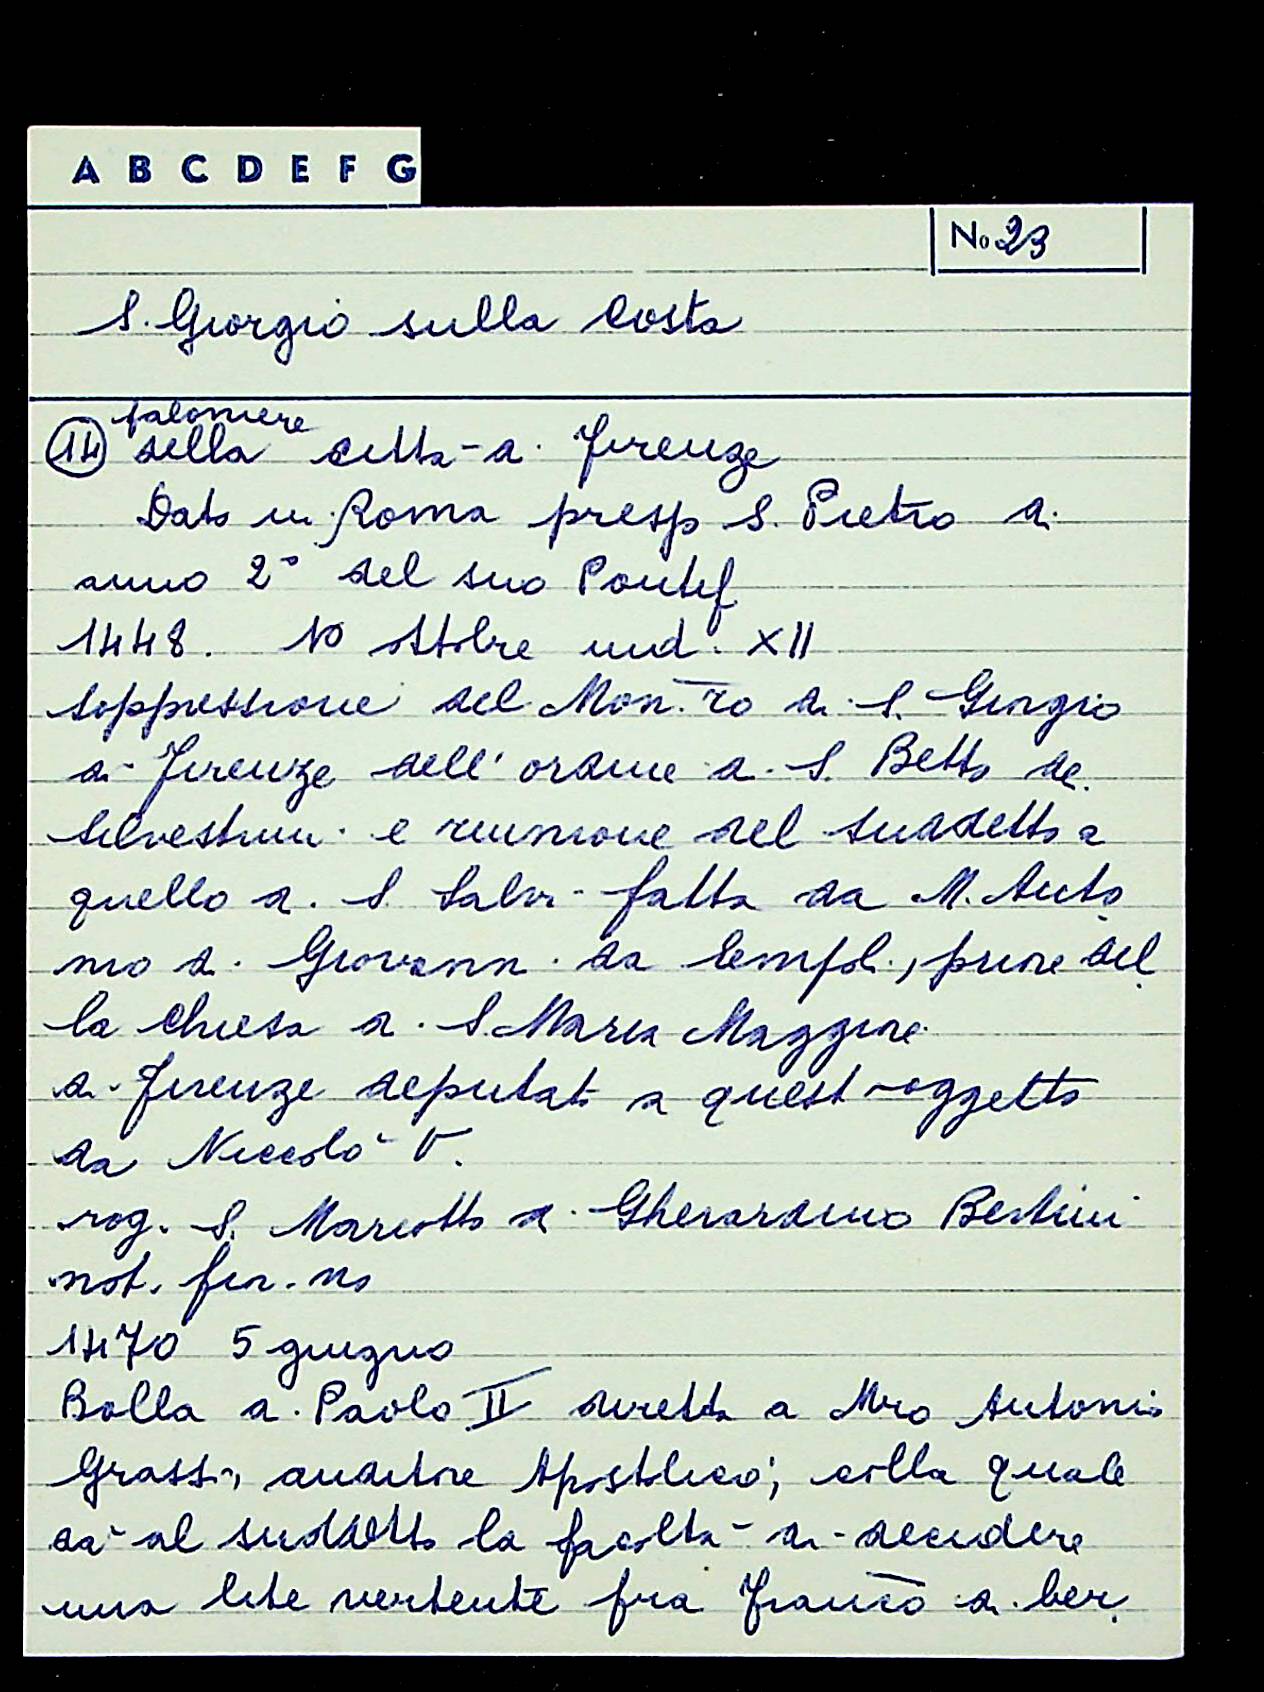 A B C D E F G
No 23
S. Giorgio sulla Costa
14 faloniere
della città di Firenze
Dato in Roma presso S. Pietro a.
anno 2° del suo Pontef
1448. 10 ottobre ind. XII
soppressione del Mon.ro di S. Giorgio
di Firenze dell'ordine di S. Betto de
Silvestrini e riunione del suddetto a
quello di S. Salvi fatta da M. Anto
nio di Giovanni da Empoli, priore del
la chiesa di S. Maria Maggiore
di Firenze deputato a quest'oggetto
da Niccolò V.
rog. S. Mariotto di Gherardino Bertini
not. fior.no
1470 5 giugno
Bolla di Paolo II diretta a Mro Antonio
Grassi, auditore Apostolico; colla quale
dà al suddetto la facoltà di decidere
una lite vertente fra Franco di ber